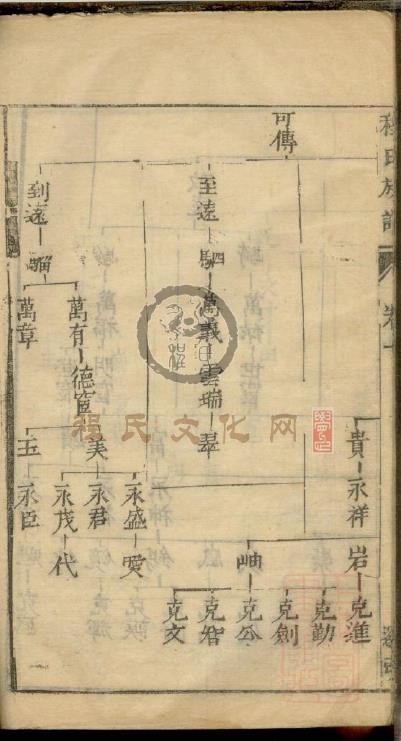 程氏族譜
卷一
可傳
貴 永祥
岩 克進
克勤
克劍
岫 克公
克智
克文
至遠 駟 萬義 雲瑞 翠
到遠 騮
萬有 德寬
美 永盛 愛
永君
永茂 代
玉 永臣
萬章
程氏文化网